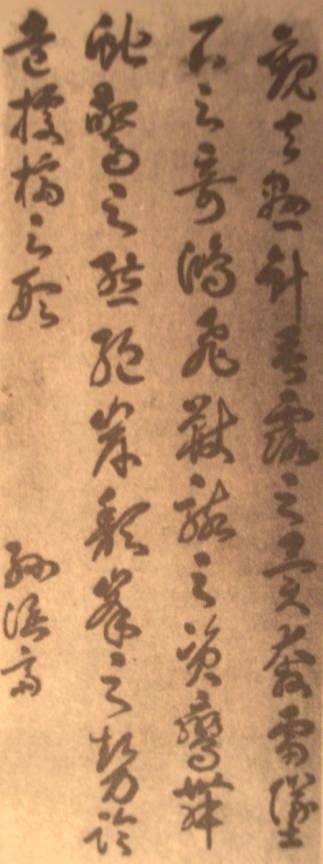 觀夫懸針垂露之異奔雷墜
石之奇鴻飛獸駭之資鸞舞
蛇驚之態絕岸頹峯之勢臨
危據槁之形